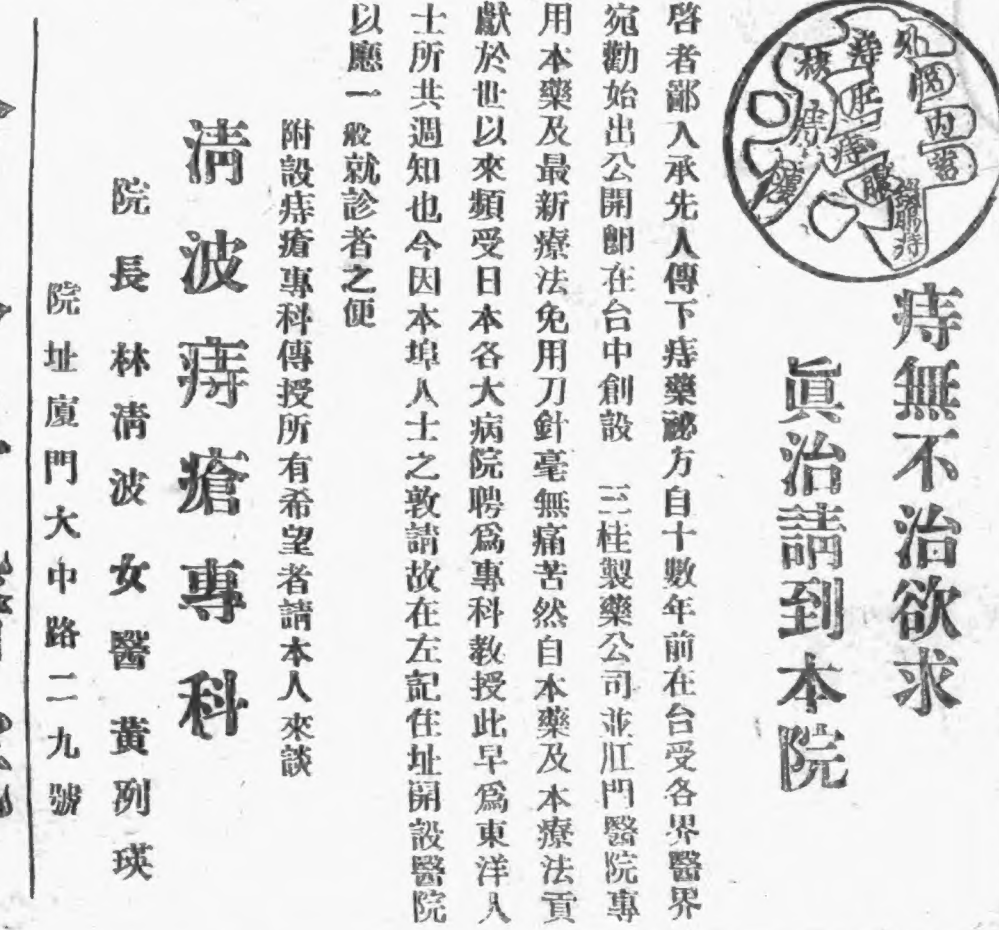 痔無不治欲求
眞治請到本院
啓者鄙人承先人傳下痔藥祕方自十數年前在台受各界醫界
宛勸始出公開創在台中創設　三桂製藥公司並肛門醫院專
用本藥及最新療法免用刀針毫無痛苦然自本藥及本療法貢
獻於世以來頻受日本各大病院聘爲專科敎授此早爲東洋人
士所共週知也今因本埠人士之敦請故在左記住址開設醫院
以應一般就診者之便
附設痔瘡專科傳授所有希望者請本人來談
淸波痔瘡專科
院長林淸波女醫黃列瑛
院址廈門大中路二九號